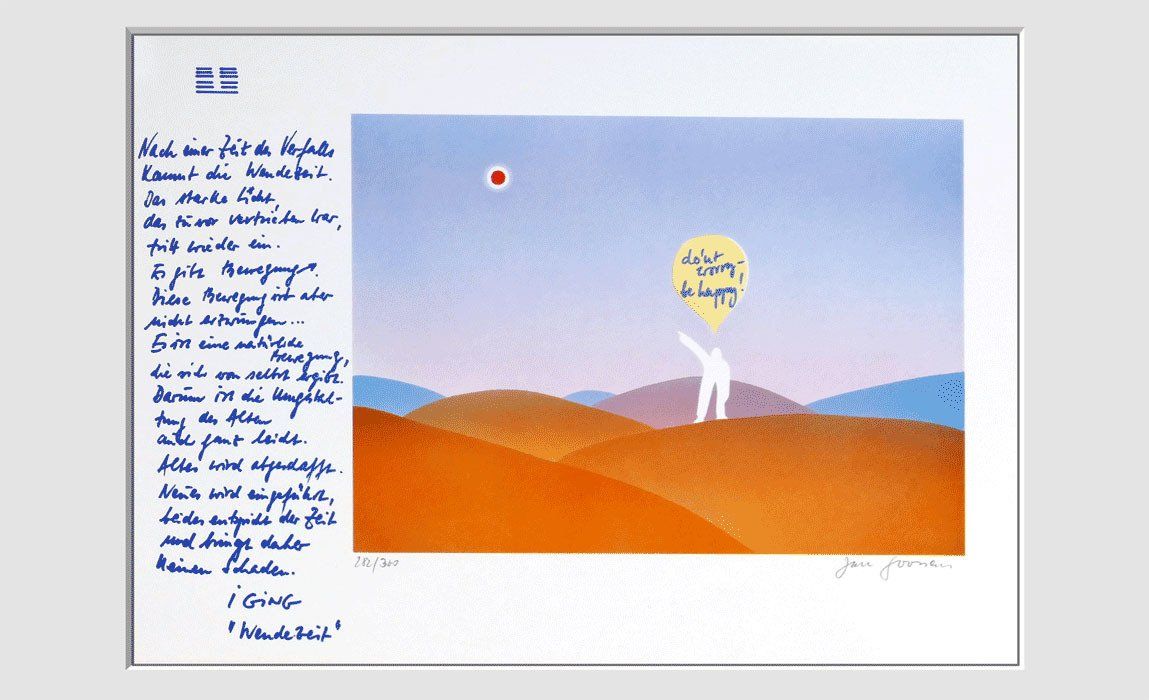 Nach einer Zeit des Verfalls
kommt die Wendezeit.
Das starke Licht,
das zuvor vertrieben war,
tritt wieder ein.
Es gibt Bewegung.
Diese Bewegung ist aber
nicht erzwungen...
Es ist eine natürliche
Bewegung,
die sich von selbst ergibt.
Darum ist die Umgestal-
tung des Alten
auch ganz leicht.
Altes wird abgeschafft.
Neues wird eingeführt,
beides entspricht der Zeit
und bringt daher
keinen Schaden.
i GiNG
"Wendezeit"
do'nt
worry-
be happy!
282/300